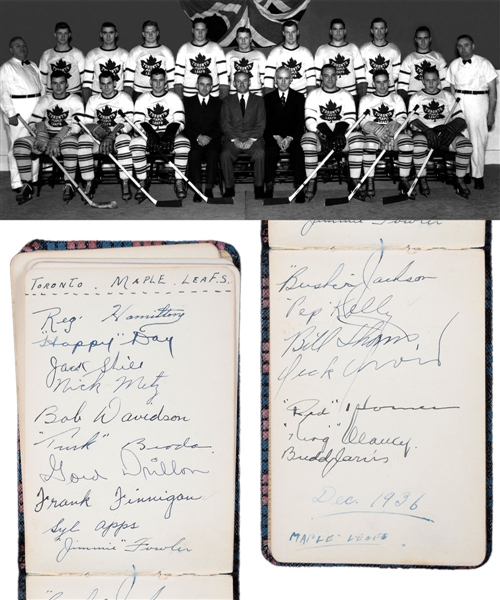 TORONTO . MAPLE . LEAFS.
Reg. Hamilton
"Happy" Day
Jack Shill
Nick Metz
Bob Davidson
"Turk" Broda.
Gord Drillon
Frank Finnigan
Syl apps
"Jimmie" Fowler
Jimmie Fowler
"Busher" Jackson
"Pep" Kelly
Bill Thoms,
"Red" Horner
"King" Clancy.
Buddy Jarvis
Dec. 1936
MAPLE LEAFS